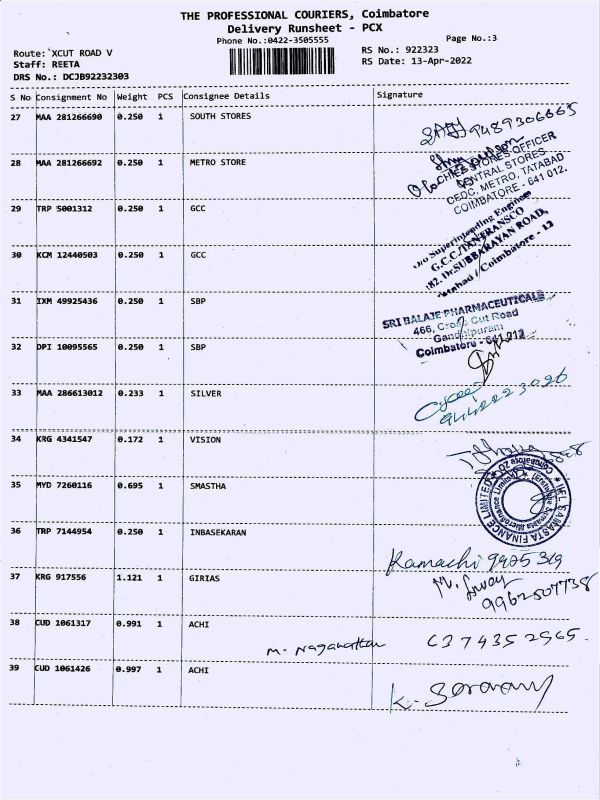 THE PROFESSIONAL COURIERS, Coimbatore
Delivery Runsheet - PCX
Phone No.:0422-3505555
Page No.:3
Route: XCUT ROAD V
RS No.: 922323
Staff: REETA
RS Date: 13-Apr-2022
DRS No.: DCJB92232303
S No Consignment No Weight PCS Consignee Details Signature
27 MAA 281266690 0.250 1 SOUTH STORES
9489306665
28 MAA 281266692 0.250 1 METRO STORE
STORES OFFICER
CENTRAL STORES
CEDC, METRO, TATABAD
COIMBATORE - 641 012.
29 TRP 5001312 0.250 1 GCC
O/o Superintending Engineer
G.C.C/TANTRANSCO
182, Dr.SUBBARAYAN ROAD,
Tatabad / Coimbatore - 12
30 KCM 12440503 0.250 1 GCC
31 IXM 49925436 0.250 1 SBP
SRI BALAJE PHARMACEUTICALS
466, Cross Cut Road
Gandhipuram
Coimbatore - 641 012
32 DPI 10095565 0.250 1 SBP
33 MAA 286613012 0.233 1 SILVER
9442223026
34 KRG 4341547 0.172 1 VISION
35 MYD 7260116 0.695 1 SMASTHA
IIFL SAMASTA FINANCE LIMITED
36 TRP 7144954 0.250 1 INBASEKARAN
Kamachi
37 KRG 917556 1.121 1 GIRIAS
9962507738
38 CUD 1061317 0.991 1 ACHI
M. Naganathan 6374352965.
39 CUD 1061426 0.997 1 ACHI